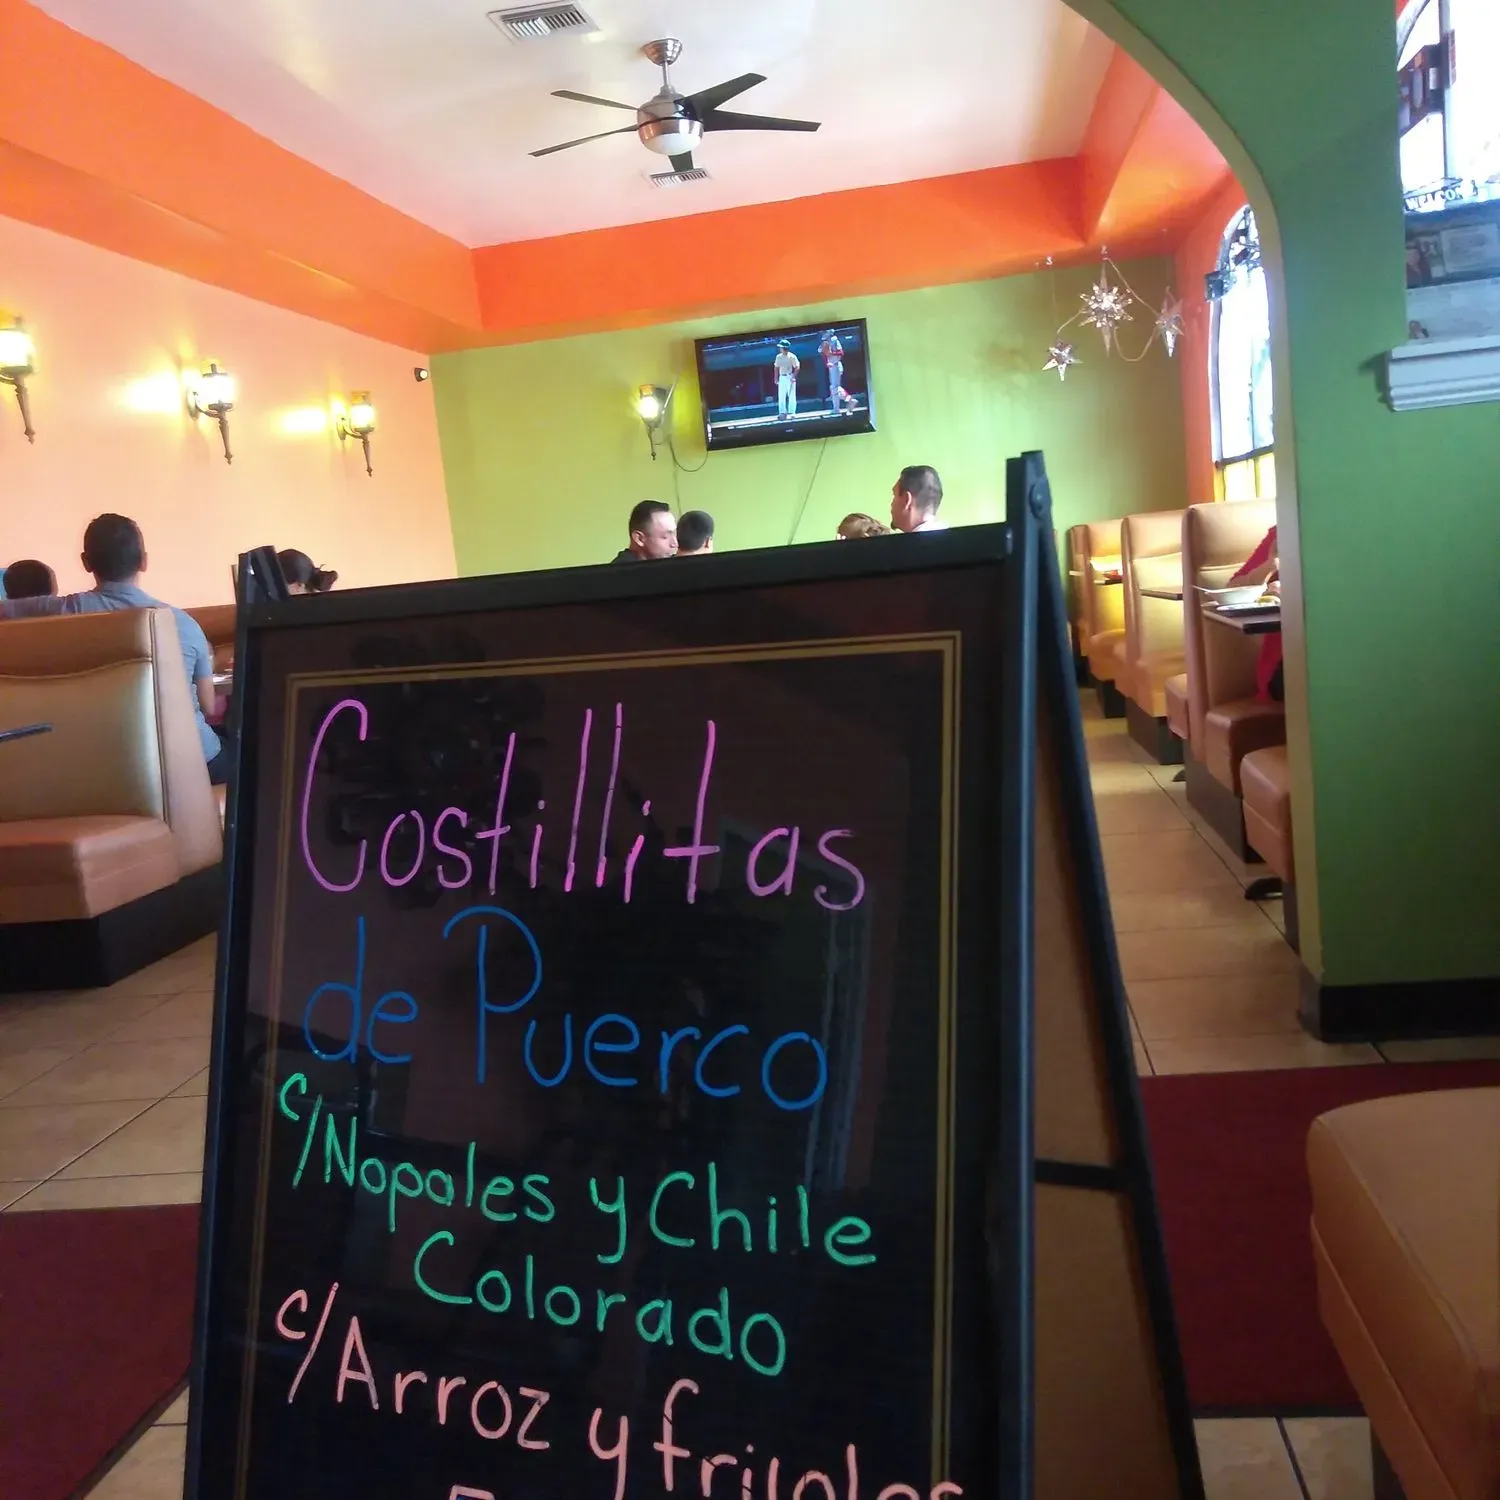 Costillitas
de Puerco
c/Nopales y Chile
Colorado
c/Arroz y frijoles